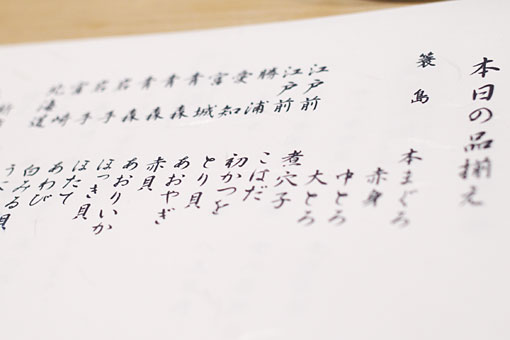 本日の品揃え
簑島 本まぐろ
赤身
中とろ
大とろ
江戸前 煮穴子
江戸前 こはだ
勝浦 初かつを
愛知 とり貝
宮城 あおやぎ
青森 赤貝
青森 あおりいか
青森 ほっき貝
岩手 ほたて
岩手 あわび
宮崎 白みる貝
北海道